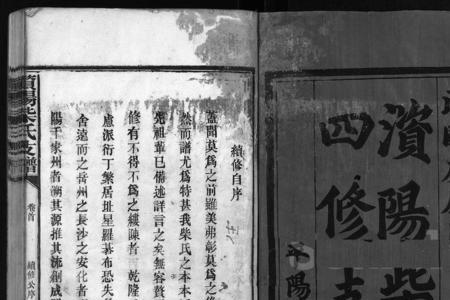 資陽柴
四修支
平陽
續修自序
蓋聞莫爲之前雖美弗彰莫爲之後
然而譜尤爲特甚我柴氏之本本
先祖輩已備述詳言之矣無容贅
修有不得不爲之縷陳者 乾隆
處派衍丁繁居址星羅碁布恐失
舍遠而之岳州之長沙之安化者
陽于家州者溯其源推其流創成
資陽柴氏支譜
卷首
續修公序